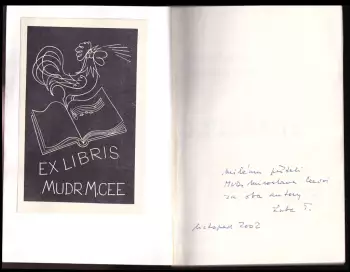 EX LIBRIS
MUDR M.CEE
Milému příteli
MUDr Miroslavu
za oba autory
Luba T.
listopad 2002